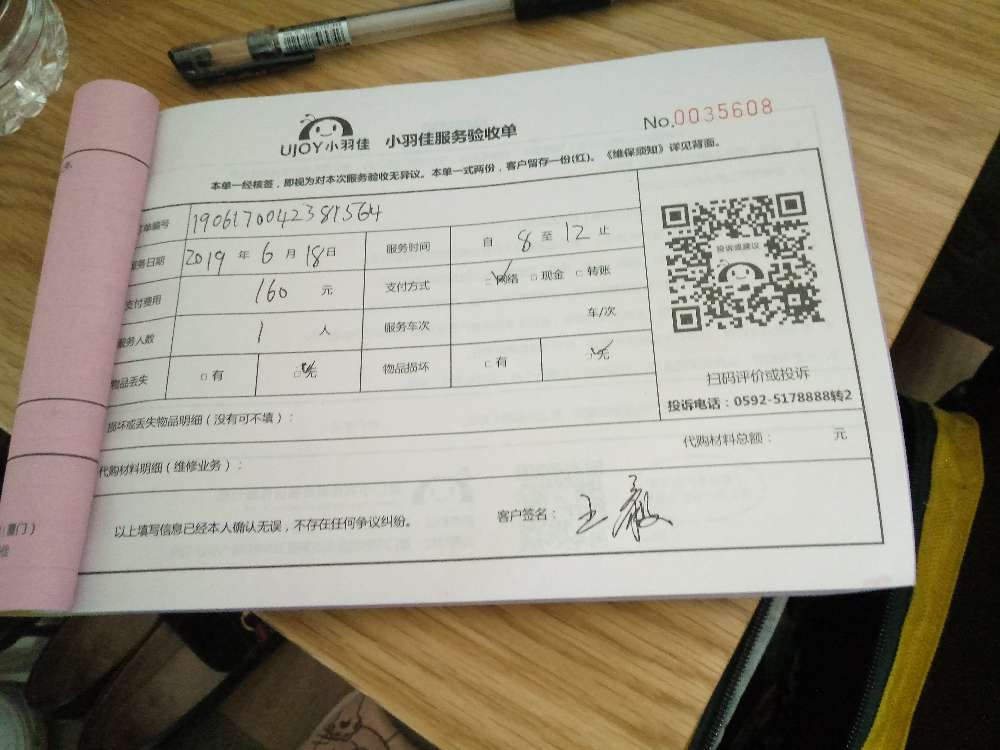 UJOY小羽佳 小羽佳服务验收单 No.0035608
本单一经核签，即视为对本次服务验收无异议。本单一式两份，客户留存一份(红)。《维保须知》详见背面。
订单编号 1906170042381564
服务日期 2019 年 6 月 18 日 服务时间 自 8 至 12 止
投诉或建议
支付费用 160 元 支付方式 □网络 □ 现金 □ 转账
服务人数 1 人 服务车次 车/次
物品丢失 □ 有 □无 物品损坏 □ 有 □无
扫码评价或投诉
投诉电话：0592-5178888转2
损坏或丢失物品明细（没有可不填）：
代购材料明细（维修业务）： 代购材料总额： 元
以上填写信息已经本人确认无误，不存在任何争议纠纷。 客户签名： 王
厦门）